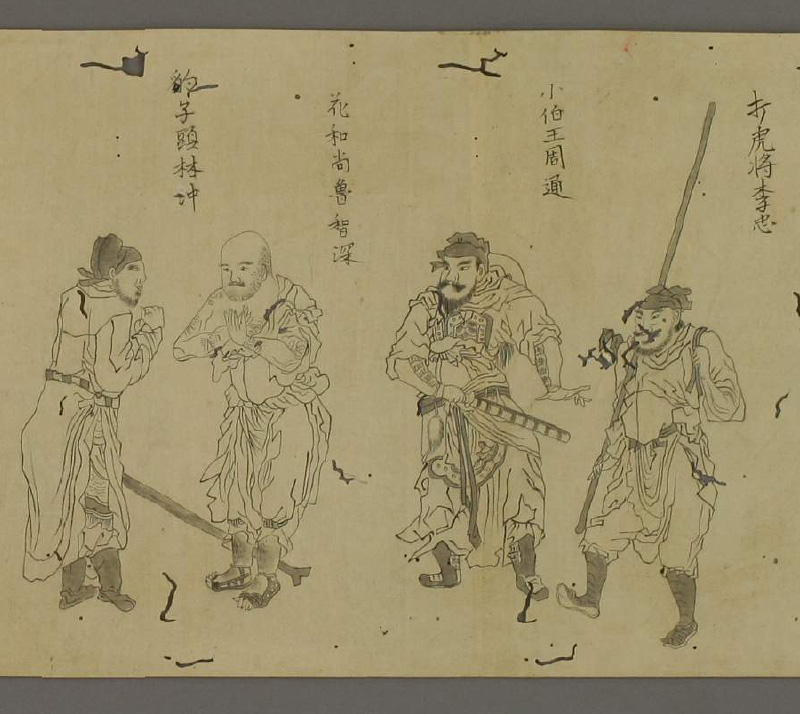 打虎将李忠
小伯王周通
花和尚魯智深
豹子頭林冲